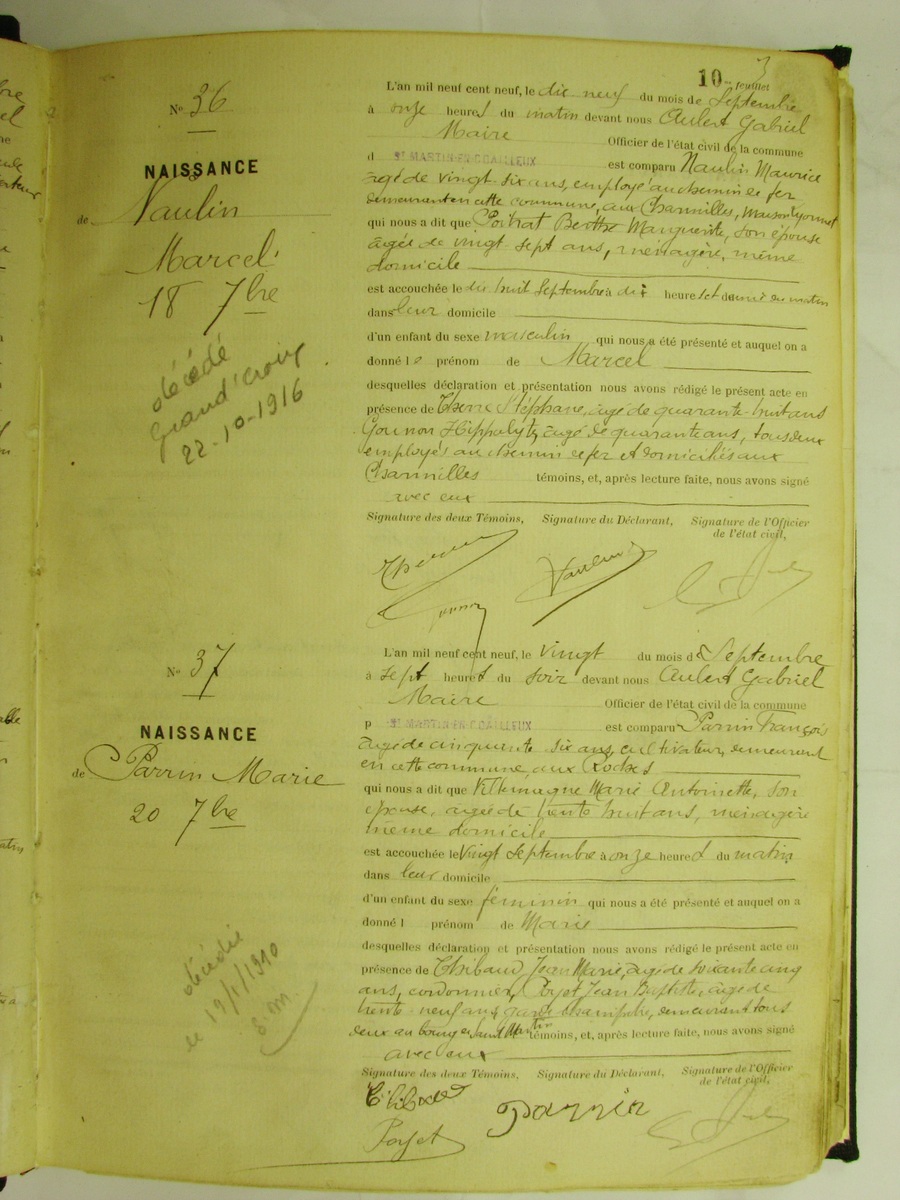 10 feuillet
3
N° 36
NAISSANCE
de Naulin
Marcel
18 7bre
décédé
Grand'Croix
22-10-1916
L'an mil neuf cent neuf, le dix neuf du mois de Septembre
à onze heures du matin devant nous Aulert Gabriel
Maire Officier de l'état civil de la commune
d St MARTIN-EN-COAILLEUX est comparu Naulin Maurice
âgé de vingt-six ans, employé au chemin de fer
demeurant en cette commune, aux Charmilles, maison Lyonnet
qui nous a dit que Poitrat Berthe Marguerite, son épouse
âgée de vingt-sept ans, ménagère, même
domicile
est accouchée le dix huit Septembre à dix heures et demie du matin
dans leur domicile
d'un enfant du sexe masculin qui nous a été présenté et auquel on a
donné le prénom de Marcel
desquelles déclaration et présentation nous avons rédigé le présent acte en
présence de Stéphane, âgé de quarante-huit ans
Gounon Hippolyte, âgé de quarante ans, tous deux
employés au chemin de fer et domiciliés aux
Charmilles témoins, et, après lecture faite, nous avons signé
avec eux
Signature des deux Témoins, Signature du Déclarant, Signature de l'Officier
de l'état civil,
Naulin
Gounon
N° 37
NAISSANCE
de Parrin Marie
20 7bre
décédée
le 19/1/1910
L'an mil neuf cent neuf, le vingt du mois de Septembre
à sept heures du soir devant nous Aulert Gabriel
Maire Officier de l'état civil de la commune
D St MARTIN-EN-COAILLEUX est comparu Parrin François
âgé de cinquante six ans, cultivateur, demeurant
en cette commune, aux Roches
qui nous a dit que Villemagne Marie Antoinette, son
épouse, âgée de trente huit ans, ménagère
même domicile
est accouchée le Vingt Septembre à onze heures du matin
dans leur domicile
d'un enfant du sexe féminin qui nous a été présenté et auquel on a
donné l prénom de Marie
desquelles déclaration et présentation nous avons rédigé le présent acte en
présence de Thibaud Jean Marie, âgé de soixante cinq
ans, cordonnier, Poyet Jean Baptiste, âgé de
trente neuf ans, garde champêtre, demeurant tous
deux au bourg de Saint Martin témoins, et, après lecture faite, nous avons signé
avec eux
Signature des deux Témoins, Signature du Déclarant, Signature de l'Officier
de l'état civil,
Parrin
Poyet